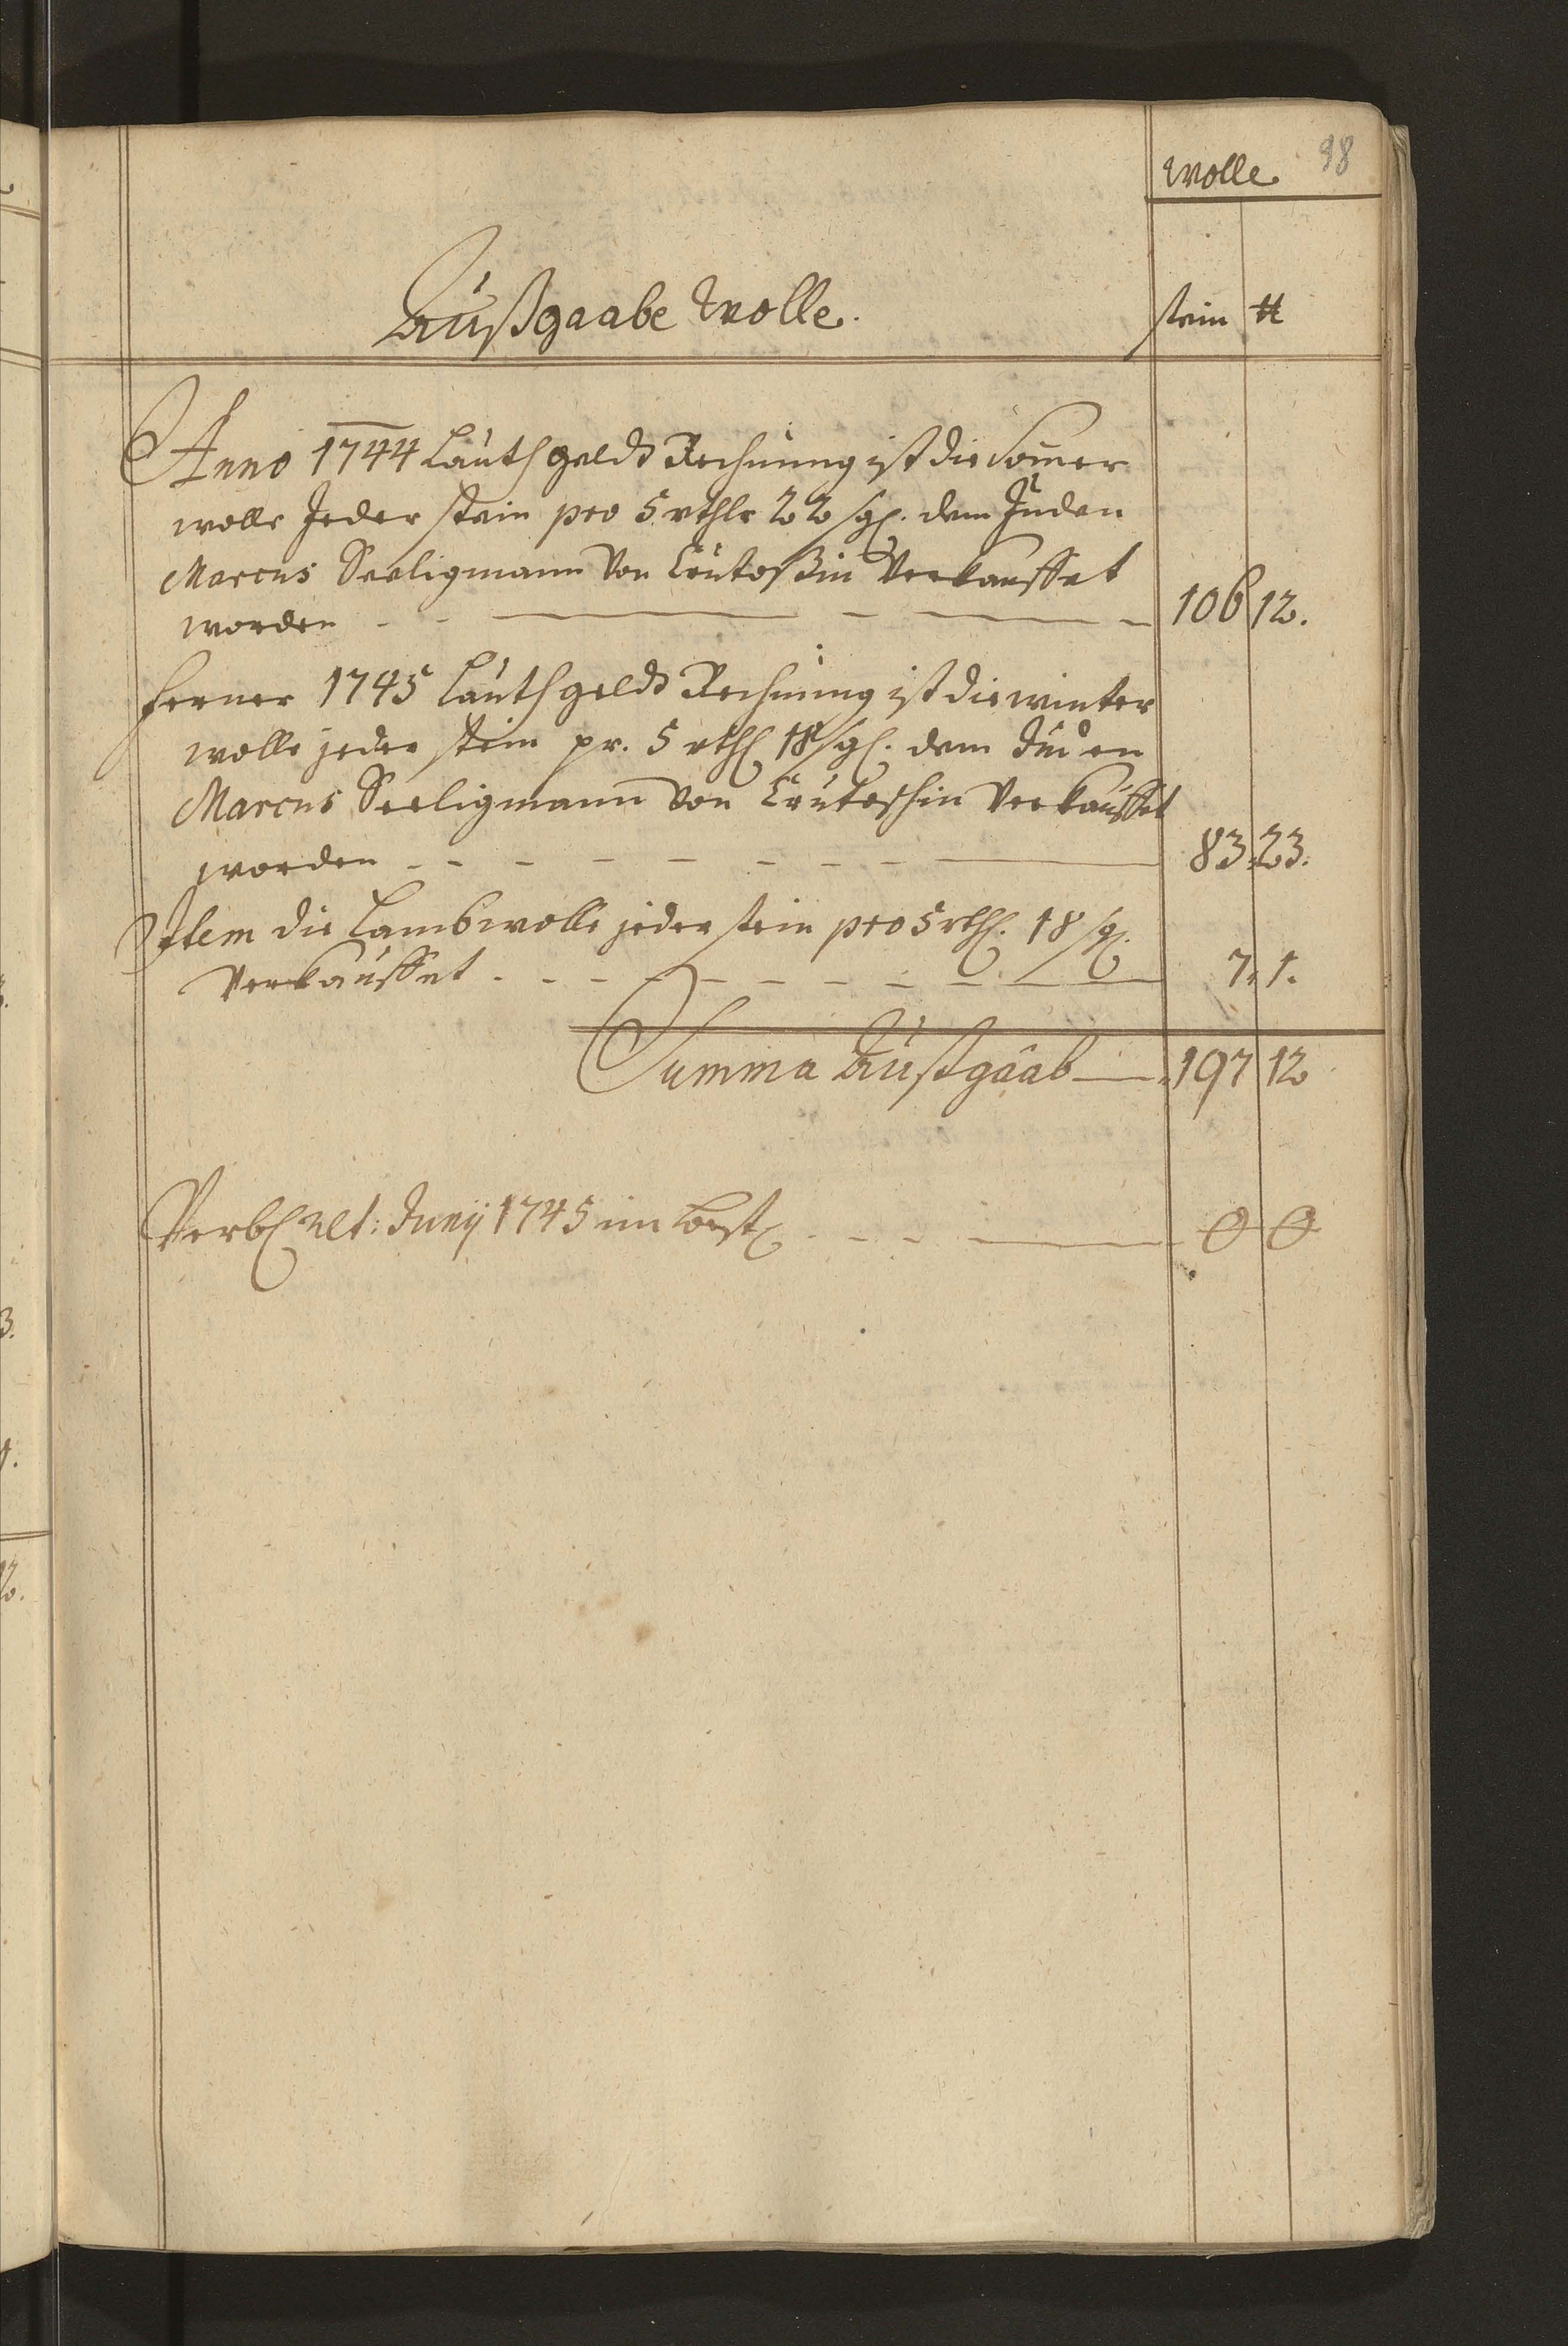 98
Wolle
Außgaabe Wolle. stein ℔
Anno 1744 Lauth geldt Rechnung ist die Som̄er
wolle Jeder stein pro 5 rthlr 22 sgl. dem Juden
Marcus Seeligmann von Crutoßin Verkauffet
worden - - — - — - 106 12.
ferner 1745 Lauth geldt Rechnung ist die winter
wolle jeder stein pr. 5 rthl 18 sgl. dem Juden
Marcus Seeligmann von Crutoschin Verkauffet
worden - - - - - - - - — 83. 23.
Item die Lambwolle jeder stein pro 5 rthl. 18 sgl.
Verkauffet - - - - - - - - - — 7. 1.
Summa Außgaab — 197 12
Verbl ult: Junij 1745 im best - - - — 0 0